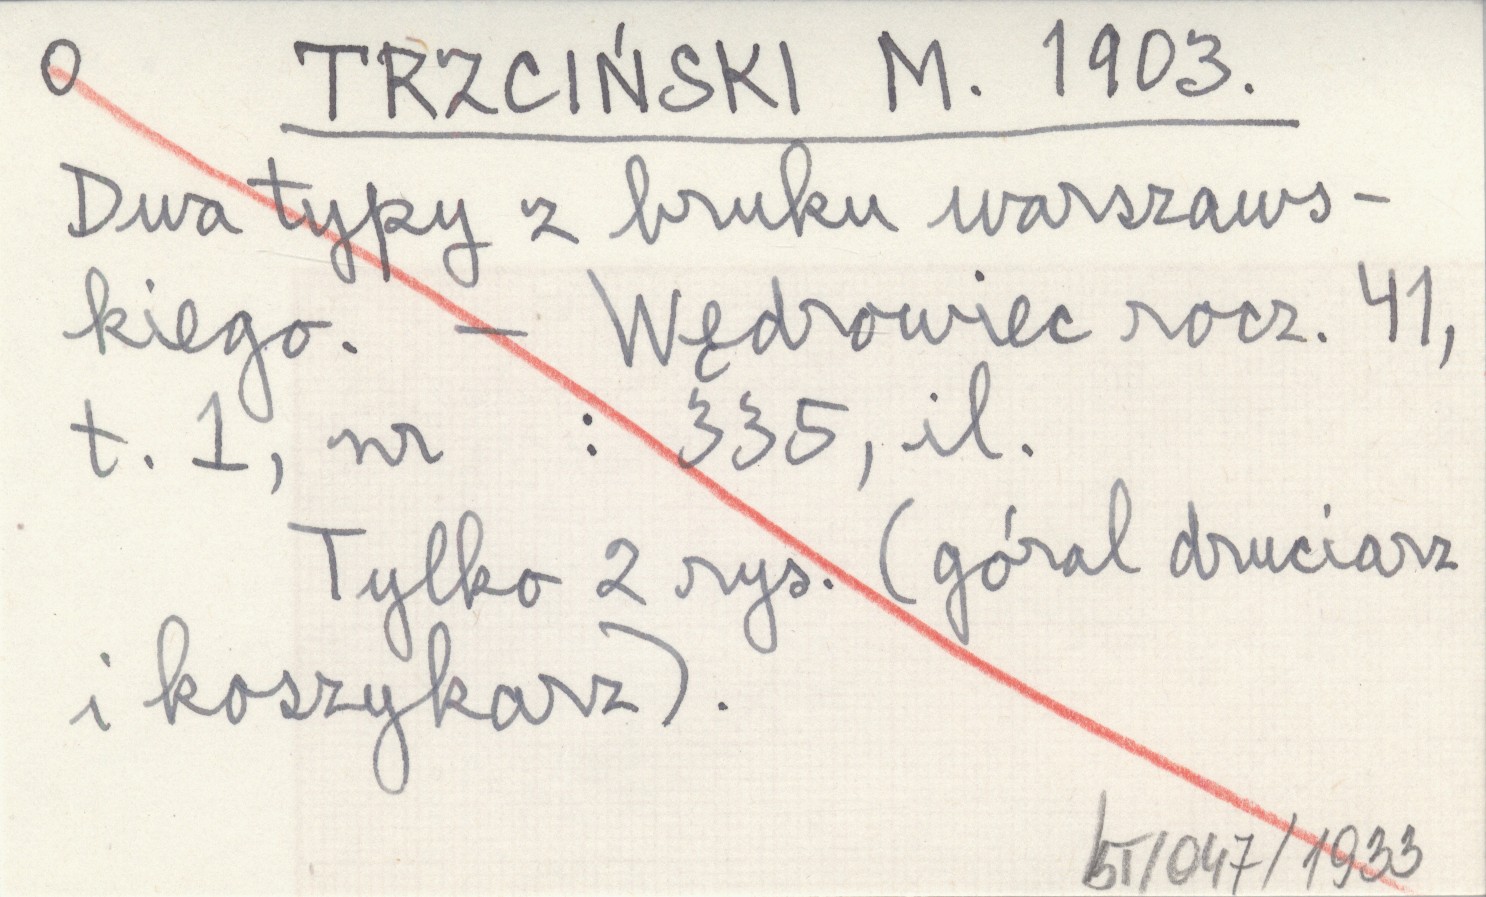 O TRZCIŃSKI M. 1903.
Dwa typy z bruku warszaws-
kiego. — Wędrowiec rocz. 41,
t. 1, nr : 335, il.
Tylko 2 rys. (góral druciarz
i koszykarz).
bT/047/1933